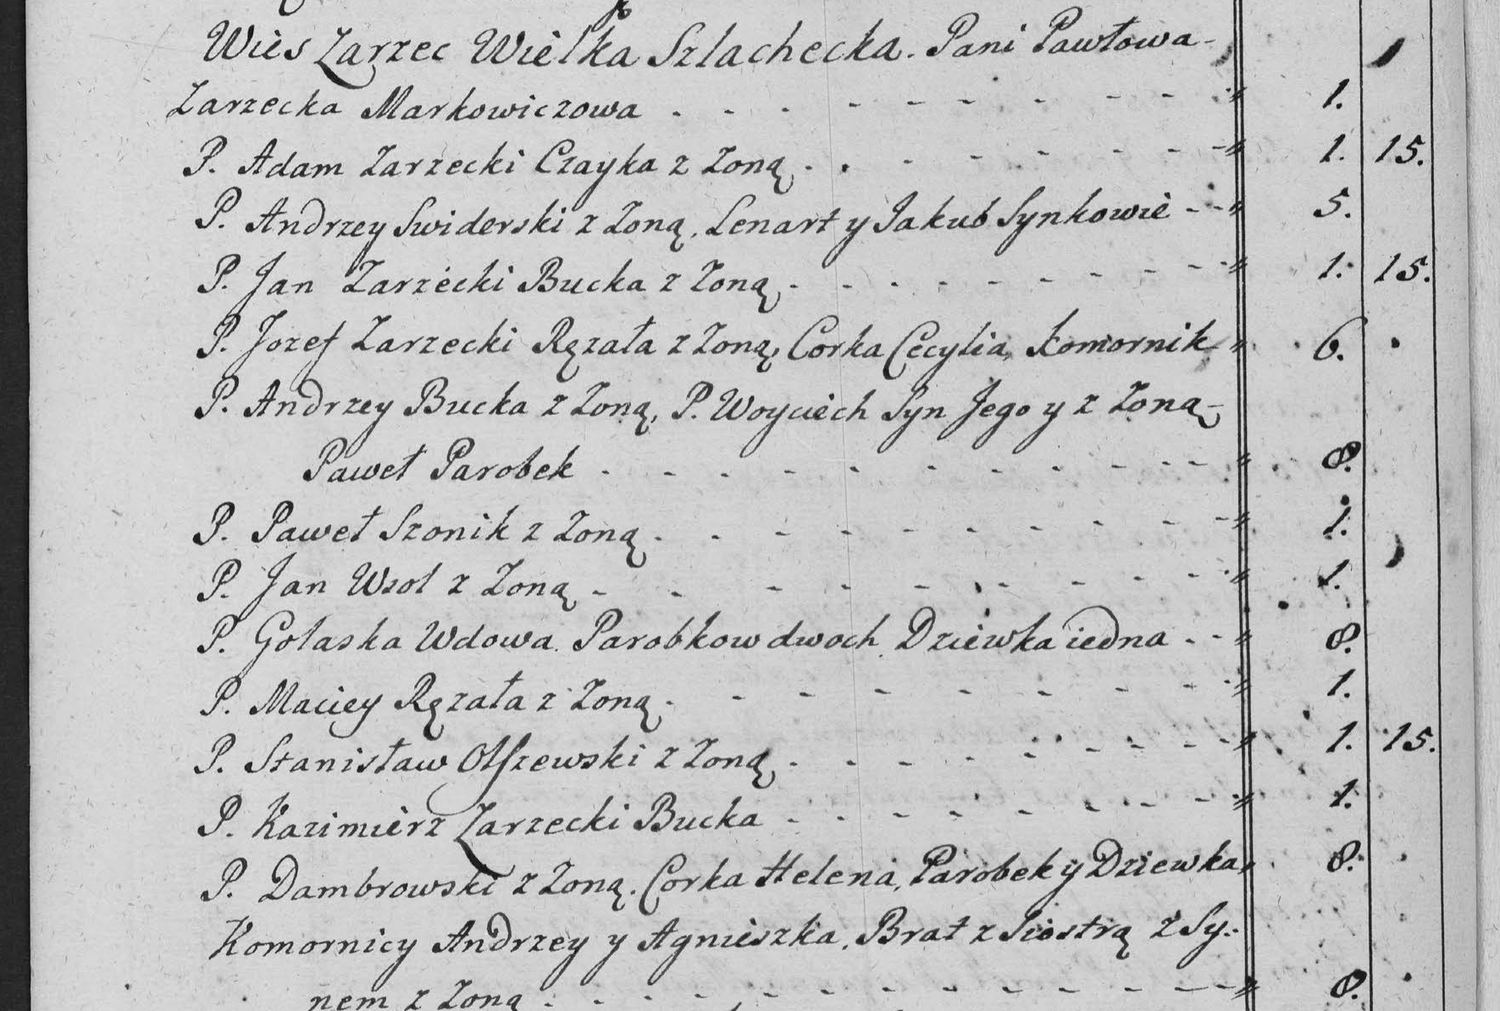 Wies Zarzec Wielka Szlachecka. Pani Pawłowa-
Zarzecka Markowiczowa . - - - - - - - - " 1.
P. Adam Zarzecki Czayka z Zoną . . - - - - - - " 1. 15.
P. Andrzey Swiderski z Zoną, Lenart y Jakub Synkowie - - " 5.
P. Jan Zarzecki Bucka z Zoną . - - - - - - - " 1. 15.
P. Jozef Zarzecki Rązała z Zoną, Corka Cecylia, Komornik " 6.
P. Andrzey Bucka z Zoną, P. Woyciech Syn Jego y z Zoną-
Paweł Parobek . - - - - - - - - - " 8.
P. Paweł Szonik z Zoną . . - - - - - - - " 1.
P. Jan Wsol z Zoną - - - - - - - - - " 1.
P. Gołaska Wdowa. Parobkow dwoch, Dziewka iedna - - " 8.
P. Maciey Rązała z Zoną . - - - - - - - " 1.
P. Stanisław Olszewski z Zoną . - - - - - - - " 1. 15.
P. Kazimierz Zarzecki Bucka - - - - - - - - " 1.
P. Dambrowski z Zoną. Corka Helena, Parobek y Dziewka, 8.
Komornicy Andrzey y Agnieszka, Brat z Siostrą z Sy-
nem z Zoną . - - - - - - - - - - " 8.